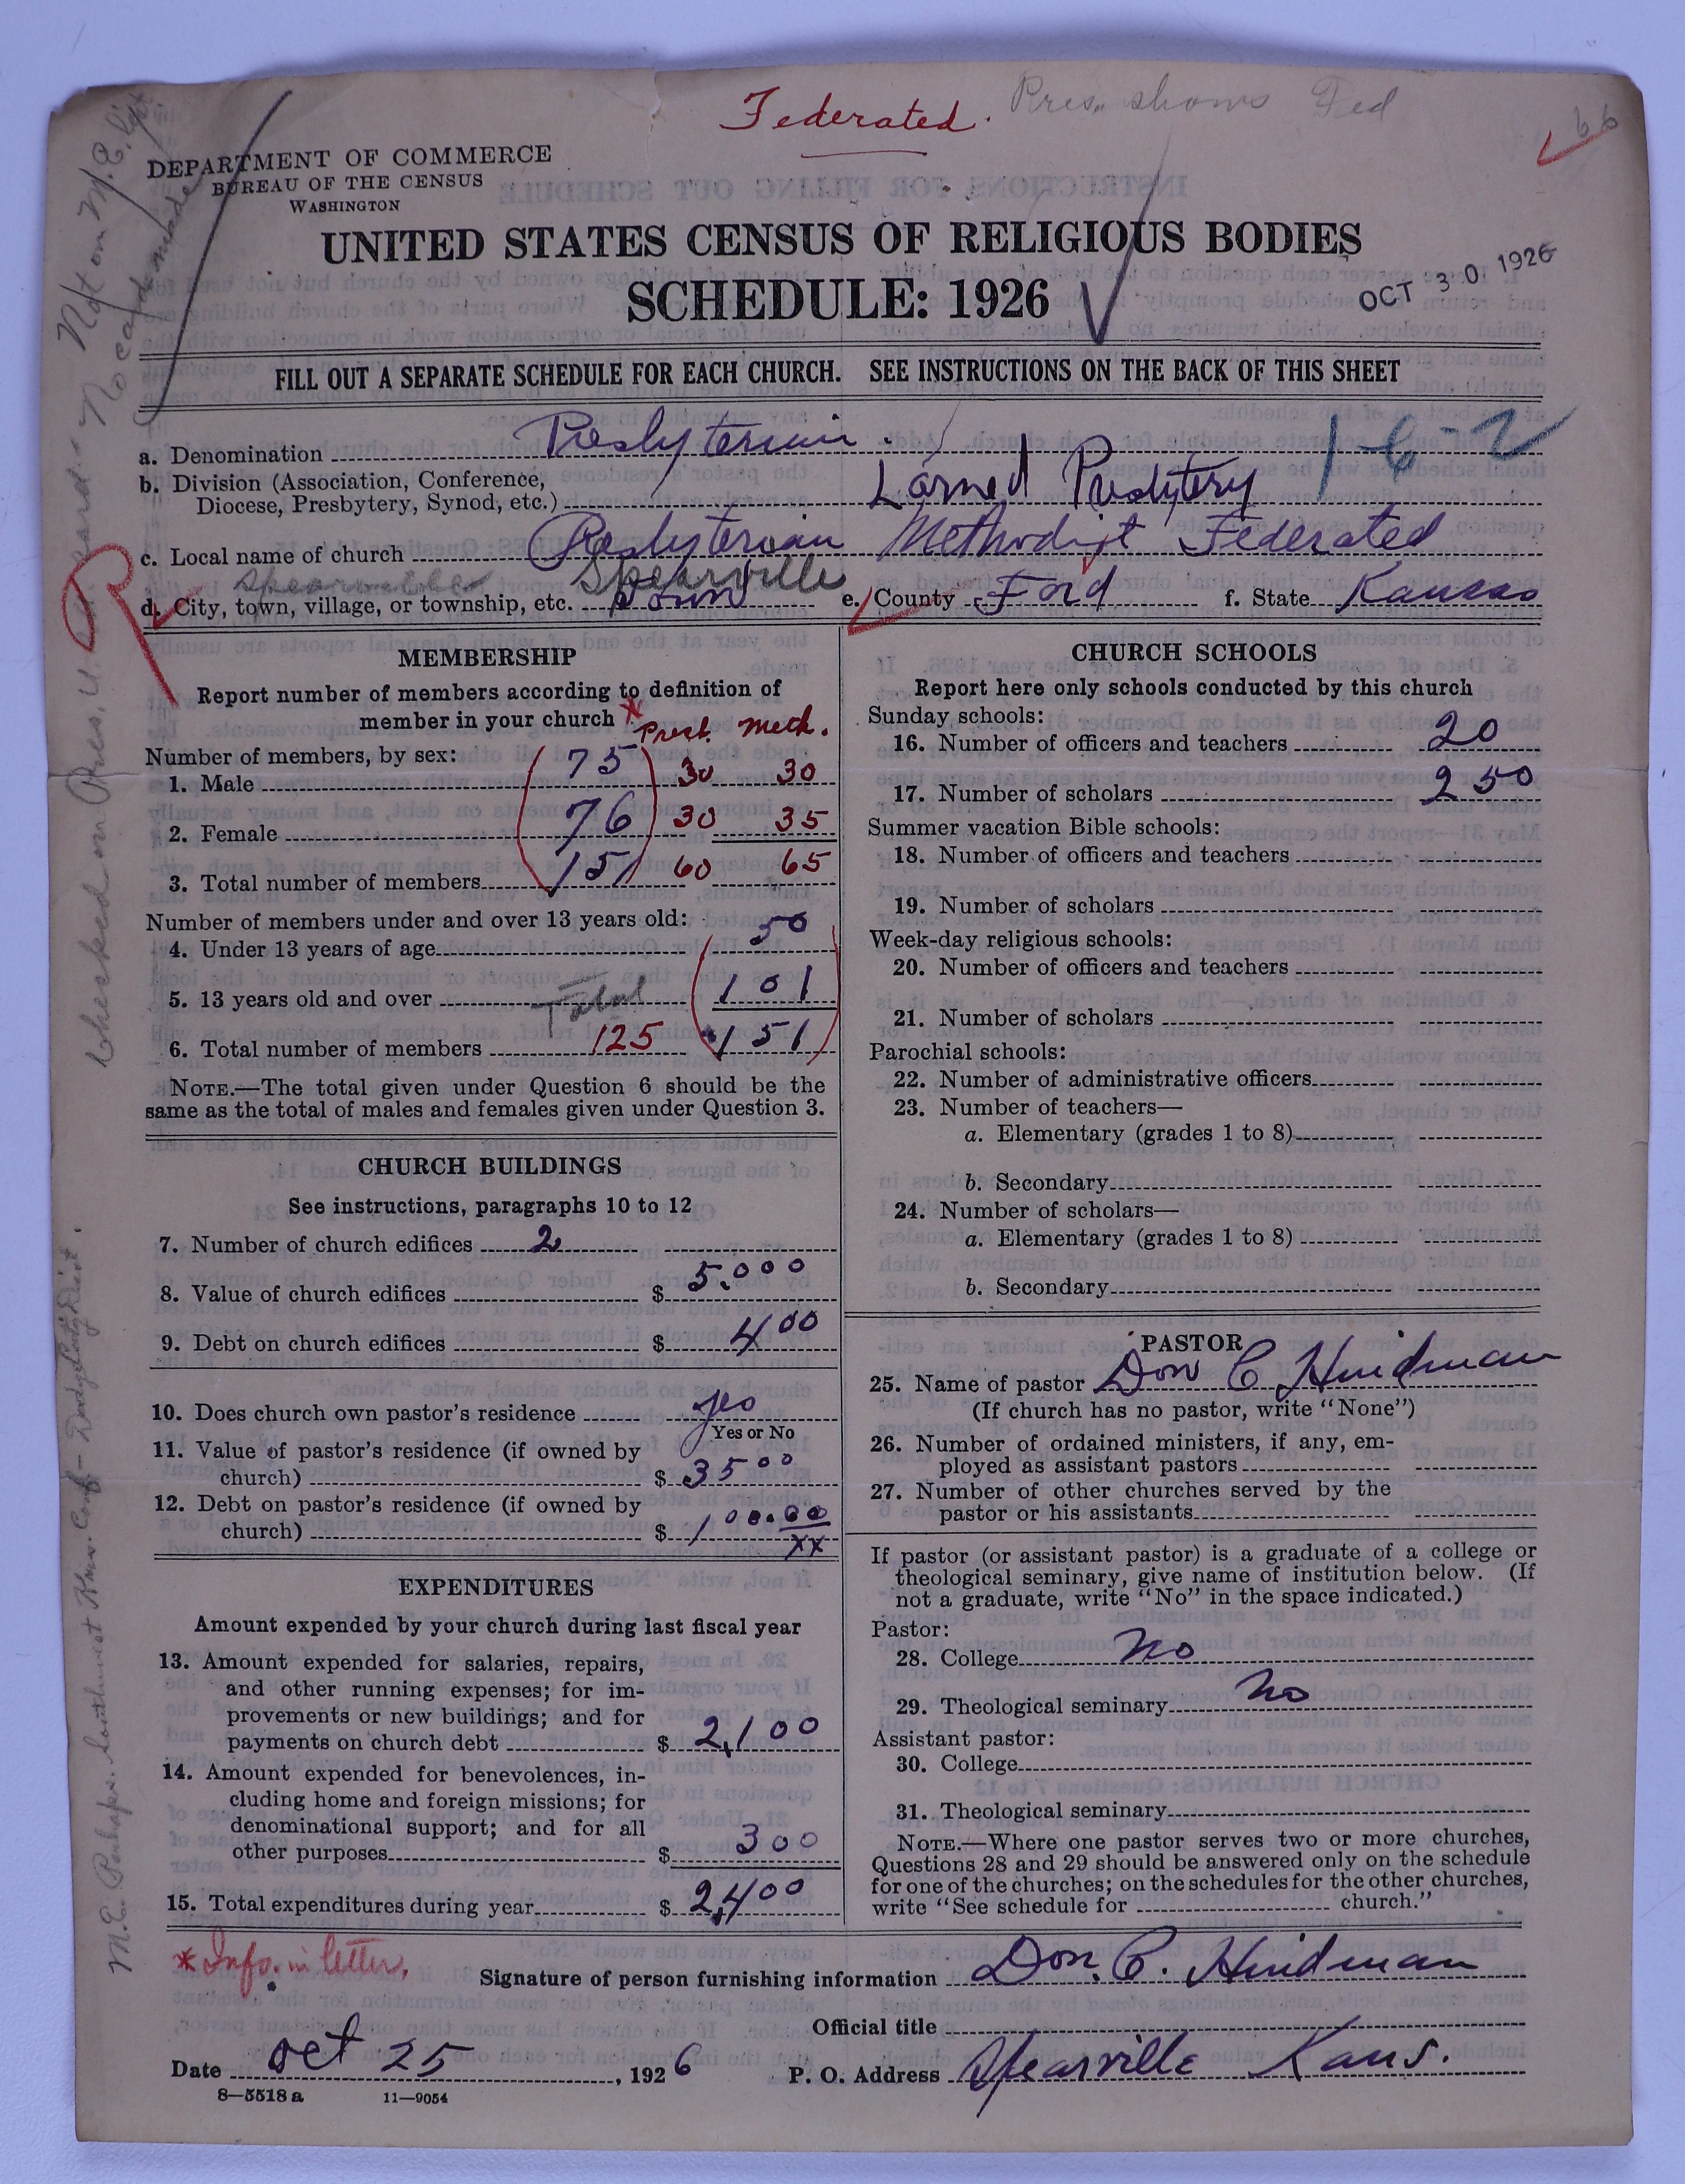 Federated. Pres. shows Fed
66
DEPARTMENT OF COMMERCE
BUREAU OF THE CENSUS
WASHINGTON
UNITED STATES CENSUS OF RELIGIOUS BODIES
SCHEDULE: 1926
OCT 30 1926
FILL OUT A SEPARATE SCHEDULE FOR EACH CHURCH. SEE INSTRUCTIONS ON THE BACK OF THIS SHEET
a. Denomination Presbyterian.
1-6-2
b. Division (Association, Conference,
Diocese, Presbytery, Synod, etc.) Larned Presbytery
c. Local name of church Presbyterian Methodist Federated
Spearville Spearville
d. City, town, village, or township, etc. Town e. County Ford f. State Kansas
MEMBERSHIP
Report number of members according to definition of
member in your church *
Prest. Meth.
Number of members, by sex:
1. Male 75 30 30
2. Female 76 30 35
3. Total number of members 151 60 65
Number of members under and over 13 years old:
4. Under 13 years of age 50
5. 13 years old and over 101
Total
6. Total number of members 125 151
NOTE.—The total given under Question 6 should be the
same as the total of males and females given under Question 3.
CHURCH BUILDINGS
See instructions, paragraphs 10 to 12
7. Number of church edifices 2
8. Value of church edifices $ 5,000
9. Debt on church edifices $ 400
10. Does church own pastor's residence yes
Yes or No
11. Value of pastor's residence (if owned by
church) $ 3500
12. Debt on pastor's residence (if owned by
church) $ 100.00
xx
EXPENDITURES
Amount expended by your church during last fiscal year
13. Amount expended for salaries, repairs,
and other running expenses; for im-
provements or new buildings; and for
payments on church debt $ 2,100
14. Amount expended for benevolences, in-
cluding home and foreign missions; for
denominational support; and for all
other purposes $ 300
15. Total expenditures during year $ 2,400
CHURCH SCHOOLS
Report here only schools conducted by this church
Sunday schools:
16. Number of officers and teachers 20
17. Number of scholars 250
Summer vacation Bible schools:
18. Number of officers and teachers
19. Number of scholars
Week-day religious schools:
20. Number of officers and teachers
21. Number of scholars
Parochial schools:
22. Number of administrative officers
23. Number of teachers—
a. Elementary (grades 1 to 8)
b. Secondary
24. Number of scholars—
a. Elementary (grades 1 to 8)
b. Secondary
PASTOR
25. Name of pastor Don C Hindman
(If church has no pastor, write "None")
26. Number of ordained ministers, if any, em-
ployed as assistant pastors
27. Number of other churches served by the
pastor or his assistants
If pastor (or assistant pastor) is a graduate of a college or
theological seminary, give name of institution below. (If
not a graduate, write "No" in the space indicated.)
Pastor:
28. College No
29. Theological seminary No
Assistant pastor:
30. College
31. Theological seminary
NOTE.—Where one pastor serves two or more churches,
Questions 28 and 29 should be answered only on the schedule
for one of the churches; on the schedules for the other churches,
write "See schedule for church."
* Info. in letter.
Signature of person furnishing information Don. C. Hindman
Official title
Date Oct 25, 1926 P. O. Address Spearville Kans.
8—5518 a 11—9054
Checked on Pres, U.S. card - Not on M.E. list
No card made
M.E. Perhaps. Southwest Kans. Conf - Dodge City Dist.